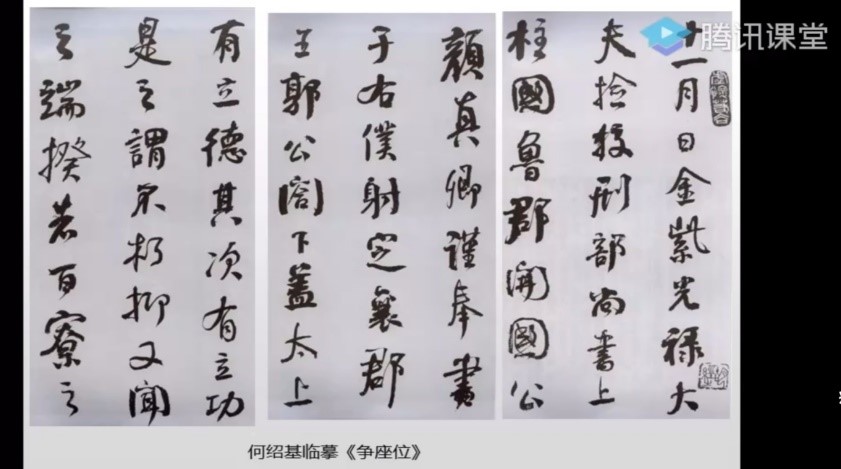 腾讯课堂
十一月日金紫光禄大
夫捡挍刑部尚書上
柱國魯郡開國公
顏真卿謹奉書
于右僕射定襄郡
王郭公閤下蓋太上
有立德其次有立功
是之謂不朽抑又聞
之端揆者百寮之
何绍基临摹《争座位》